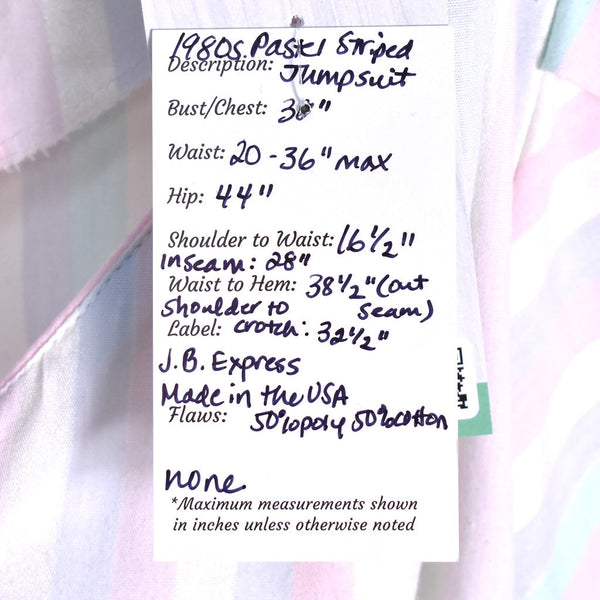 1980s Pastel Striped
Description: Jumpsuit
Bust/Chest:
Waist: 20-36" max
Hip: 44"
Shoulder to Waist: 16½"
inseam: 28"
Waist to Hem: 38½" (out
shoulder to seam)
Label: crotch: 32½"
J.B. Express
Made in the USA
Flaws: 50% poly 50% cotton
none
*Maximum measurements shown
in inches unless otherwise noted